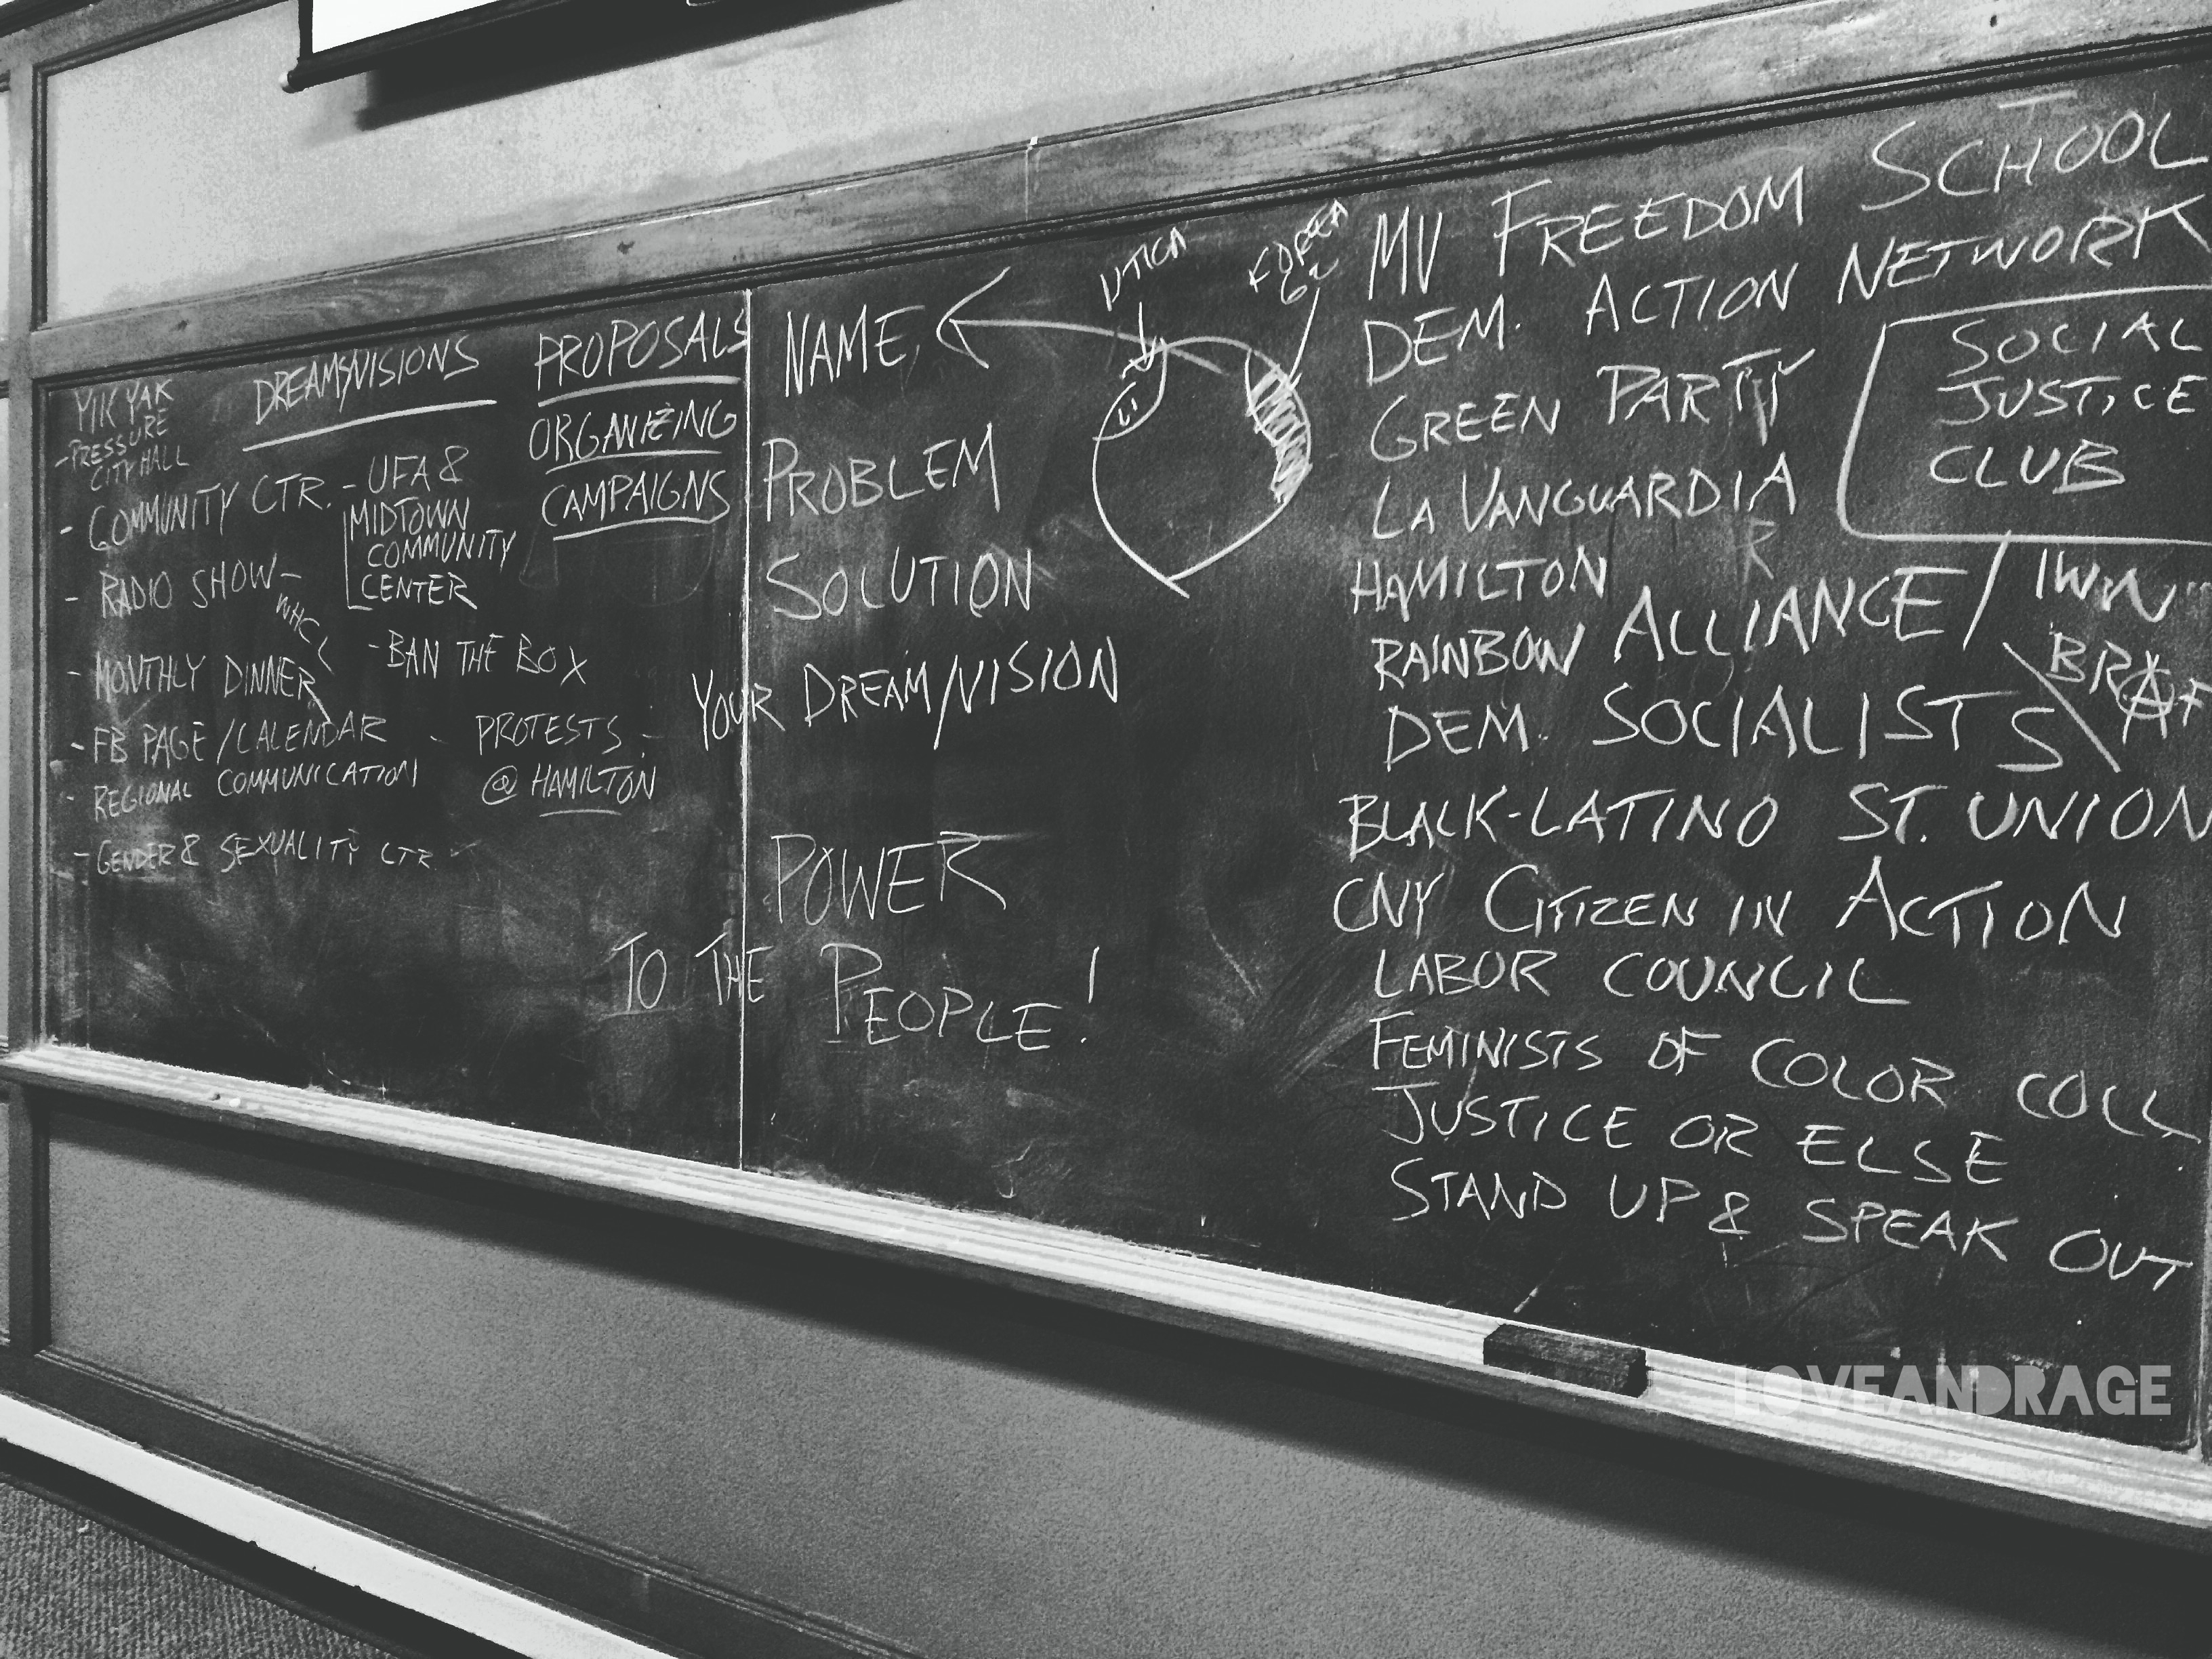 YIK YAK
-PRESSURE
CITY HALL
DREAMS/VISIONS
- COMMUNITY CTR.
- RADIO SHOW-
WHCL
- MONTHLY DINNER
- FB PAGE/CALENDAR
- REGIONAL COMMUNICATION
- GENDER & SEXUALITY CTR
- UFA &
MIDTOWN
COMMUNITY
CENTER
- BAN THE BOX
- PROTESTS
@ HAMILTON
PROPOSALS
ORGANIZING
CAMPAIGNS
NAME,
PROBLEM
SOLUTION
YOUR DREAM/VISION
POWER
TO THE PEOPLE!
UTICA
MV FREEDOM SCHOOL
DEM. ACTION NETWORK
GREEN PARTY
LA VANGUARDIA
SOCIAL
JUSTICE
CLUB
HAMILTON
RAINBOW ALLIANCE/
DEM. SOCIALISTS
BLACK-LATINO ST. UNION
CNY CITIZEN IN ACTION
LABOR COUNCIL
FEMINISTS OF COLOR COLL.
JUSTICE OR ELSE
STAND UP & SPEAK OUT
LOVEANDRAGE